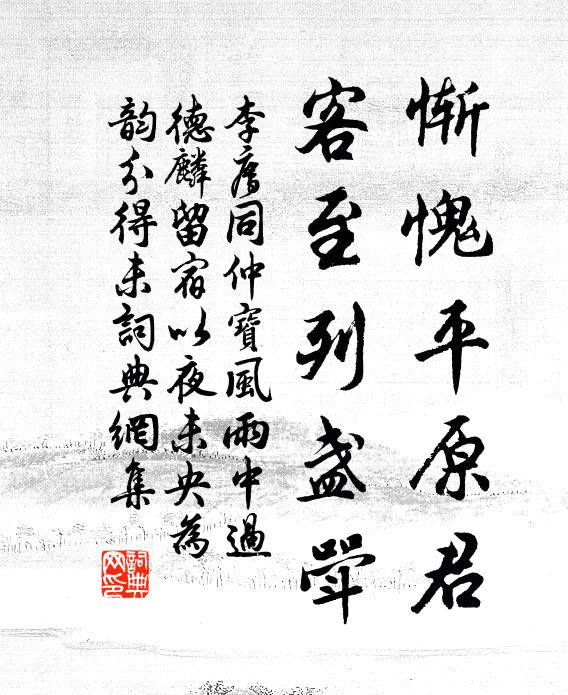 慚愧平原君
客至列盞斝
李廌同仲寶風雨中過
德麟留宿以夜未央為
韵分得未詞典網集
詞典
网印